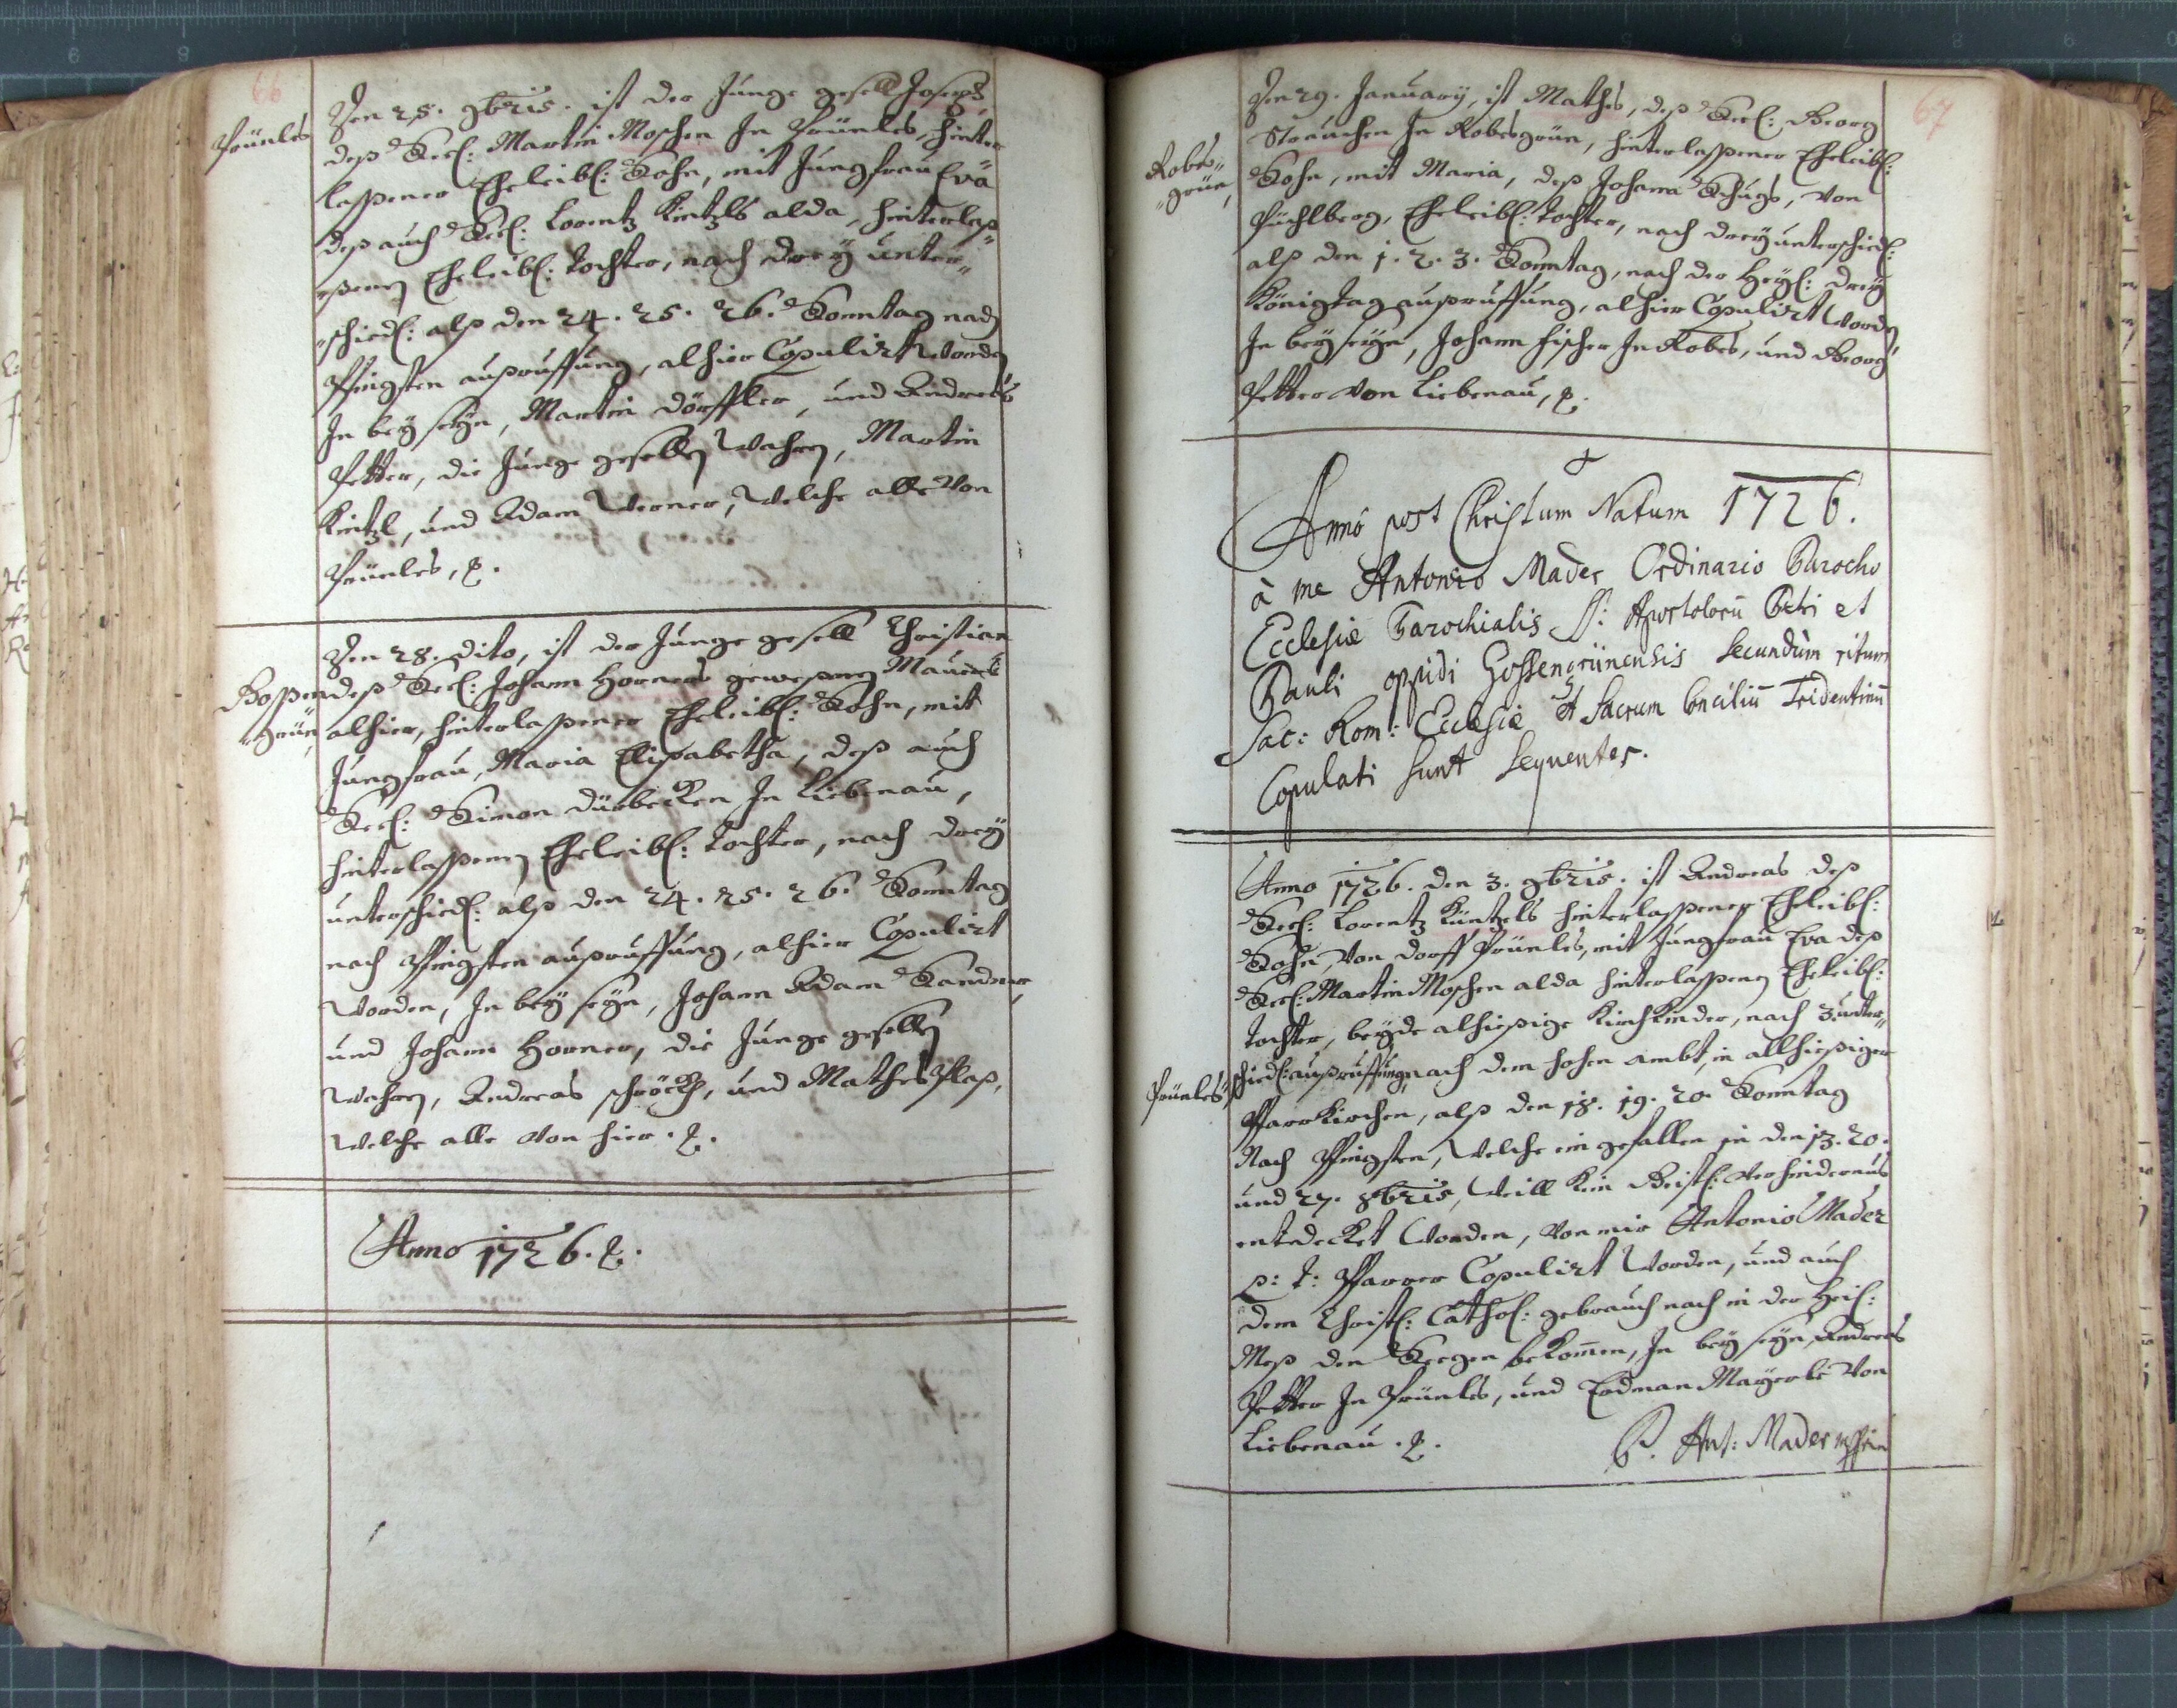 66
Prünles
Den 25. 9bris. ist der Junge gesell Joseph,
deß Seel: Martin Moschen In Prünles, hinter
laßener Eheleibl: Sohn, mit Jungfrau Eva
deß auch Seel: Lorentz Kintzls alda, hinterlaß„
„ßenen Eheleibl: Tochter, nach drey unter„
„schiedl: alß den 24. 25. 26. Sonntag nach
Pfingsten außruffung, alhier Copulirt worden
In bey seyn, Martin Dörffler, und Andreas
Petter, die Junge gesellen wahren, Martin
Kintzl, und Adam Werner, welche alle von
Prünles, p.
Goßen
„grün,
Den 28. dito, ist der Junge gesell Christian
deß Seel: Johann Horners gewesenen Maurers
alhier, hinterlaßener Eheleibl: Sohn, mit
Jungfrau, Maria Elisabetha, deß auch
Seel: Simon Dürbecken In Liebenau,
hinterlaßenen Eheleibl: Tochter, nach drey
unterschiedl: alß den 24. 25. 26. Sonntag
nach Pfingsten außruffung, alhier Copulirt
worden, In bey seyn, Johann Adam Sandner,
und Johann Horner, die Junge gesellen
wahren, Andreas Schröckh, und Mathes Plaß,
welche alle von hier. p.
Anno 1726. p.
67
Robes„
„grün,
Den 29. January, ist Mathes, deß Seel: Georg
Strauchen In Robesgrün, hinterlaßener Eheleibl:
Sohn, mit Maria, deß Johann Schugs, von
Püchlberg, Eheleibl: Tochter, nach drey unterschiedl:
alß den 1. 2. 3. Sonntag, nach der Heyl: drey
Königtag außruffung, alhier Copulirt worden
In bey seyn, Johann Fischer In Robes, und Georg
Petter von Liebenau, p.
Anno post Christum Natum 1726.
à me Antonio Mader Ordinario Parocho
Ecclesiæ Parochialis SS: Apostolorū Petri et
Pauli oppidi Gossengrünensis secundùm ritum
Sac: Rom: Ecclesiæ et Sacrum Conciliū Tridentinū
Copulati sunt sequentes.
Anno 1726. den 3. 9bris. ist Andreas deß
Seel: Lorentz Küntzels hinterlaßener Eheleibl:
Sohn, von dorff Prünles, mit Jungfrau Eva deß
Seel: Martin Moschen alda hinterlaßenen Eheleibl:
Tochter, beyde alhiesige Kirchkinder, nach 3 unter„
Prünles„
schiedl: außruffung, nach dem hohen ambt, in allhiesiger
Pfarrkirchen, alß den 18. 19. 20. Sonntag
Nach Pfingsten, welche eingefallen in den 13. 20.
und 27. 8bris, weill kein Geistl: verhindernus
entdecket worden, von mir Antonio Mader
p: t: Pfarrer Copulirt worden, und auch
dem Christl: Cathol: gebrauch nach in der Heil:
Meß den Seegen bekommen, In bey seyn, Andreas
Petter In Prünles, und Erdman Mayerle von
Liebenau. p.
P. Ant: Mader mppria